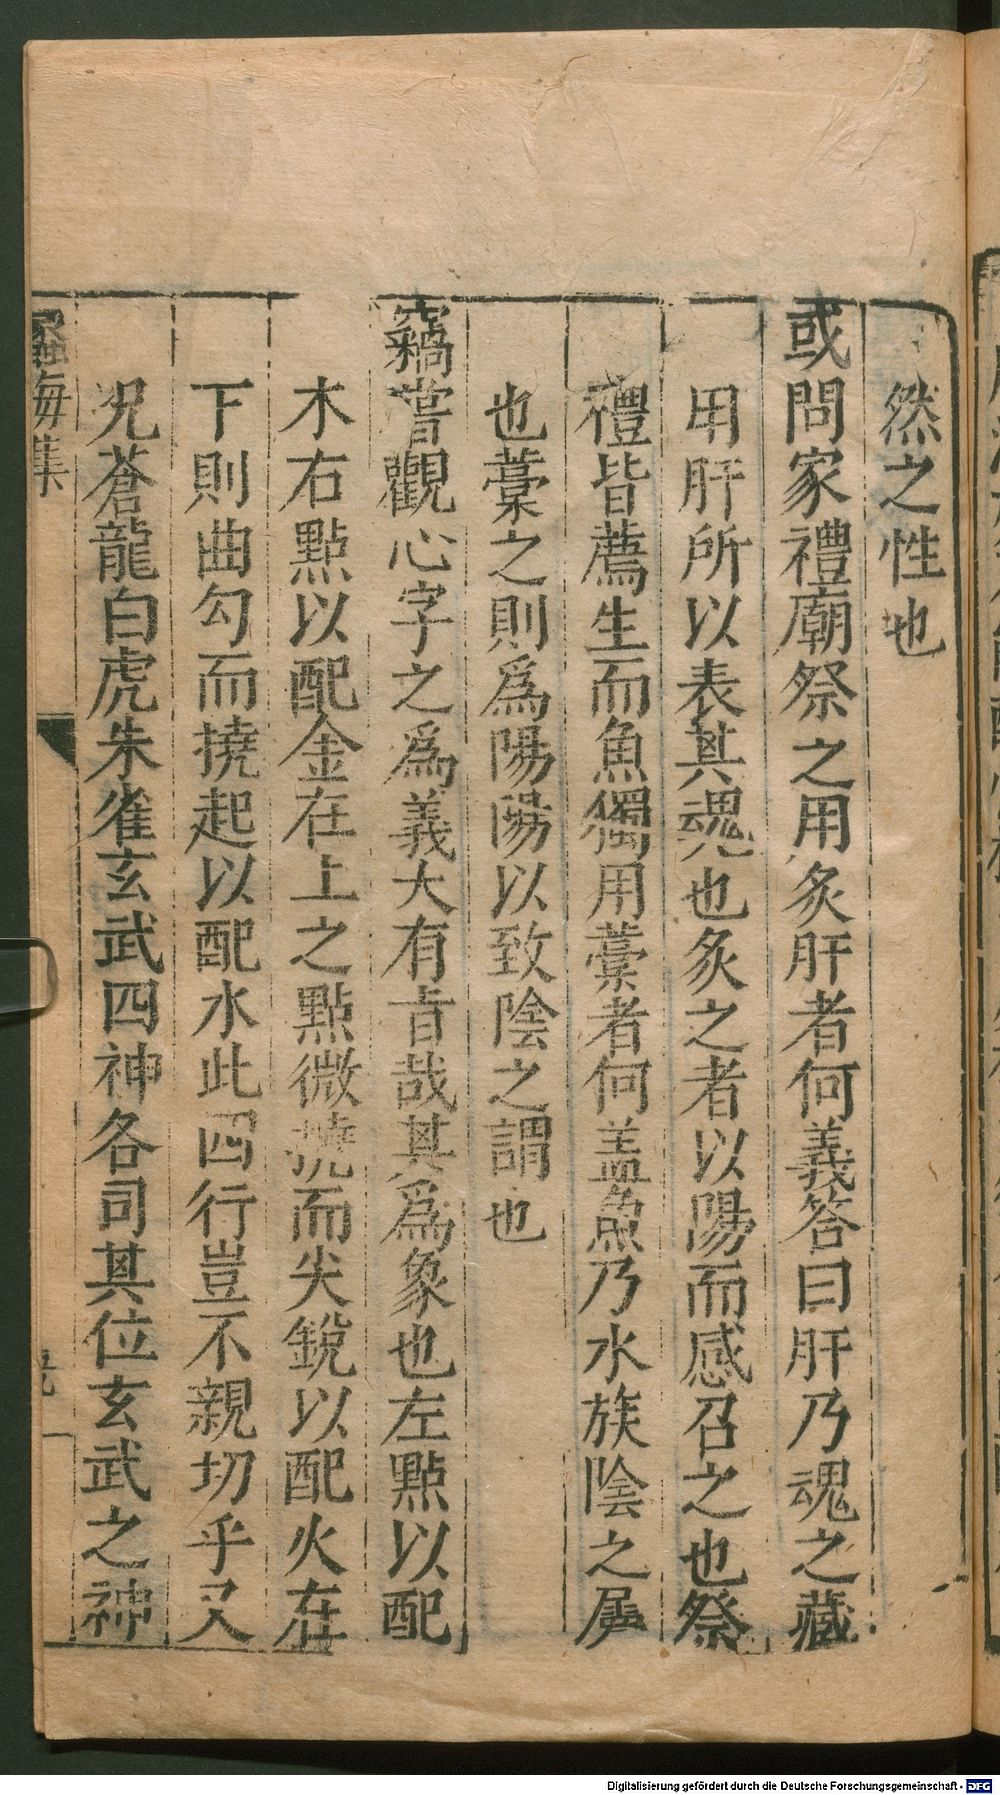 然之性也
或問家禮廟祭之用炙肝者何義答曰肝乃魂之藏
用肝所以表其魂也炙之者以陽而感召之也祭
禮皆薦生而魚獨用藁者何盖魚乃水族陰之属
也藁之則爲陽陽以致陰之謂也
竊嘗觀心字之爲義大有旨哉其爲象也左點以配
木右點以配金在上之點微撓而尖銳以配火在
下則曲勾而撓起以配水此四行豈不親切乎又
况蒼龍白虎朱雀玄武四神各司其位玄武之神
蠡海集
Digitalisierung gefördert durch die Deutsche Forschungsgemeinschaft - DFG